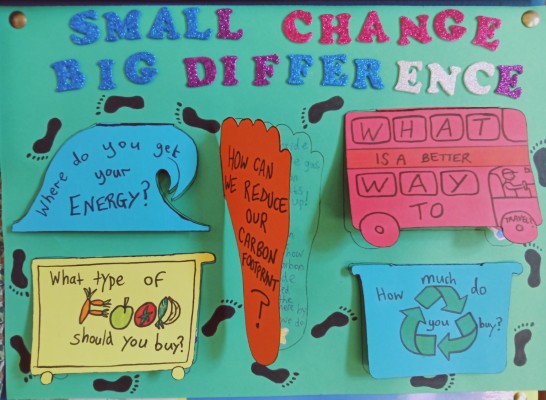 SMALL CHANGE
BIG DIFFERENCE
Where do you get
your
ENERGY?
HOW CAN
WE REDUCE
OUR
CARBON
FOOTPRINT
?
WHAT
IS A BETTER
WAY
TO
TRAVEL?
What type of
should you buy?
How much do
you buy?